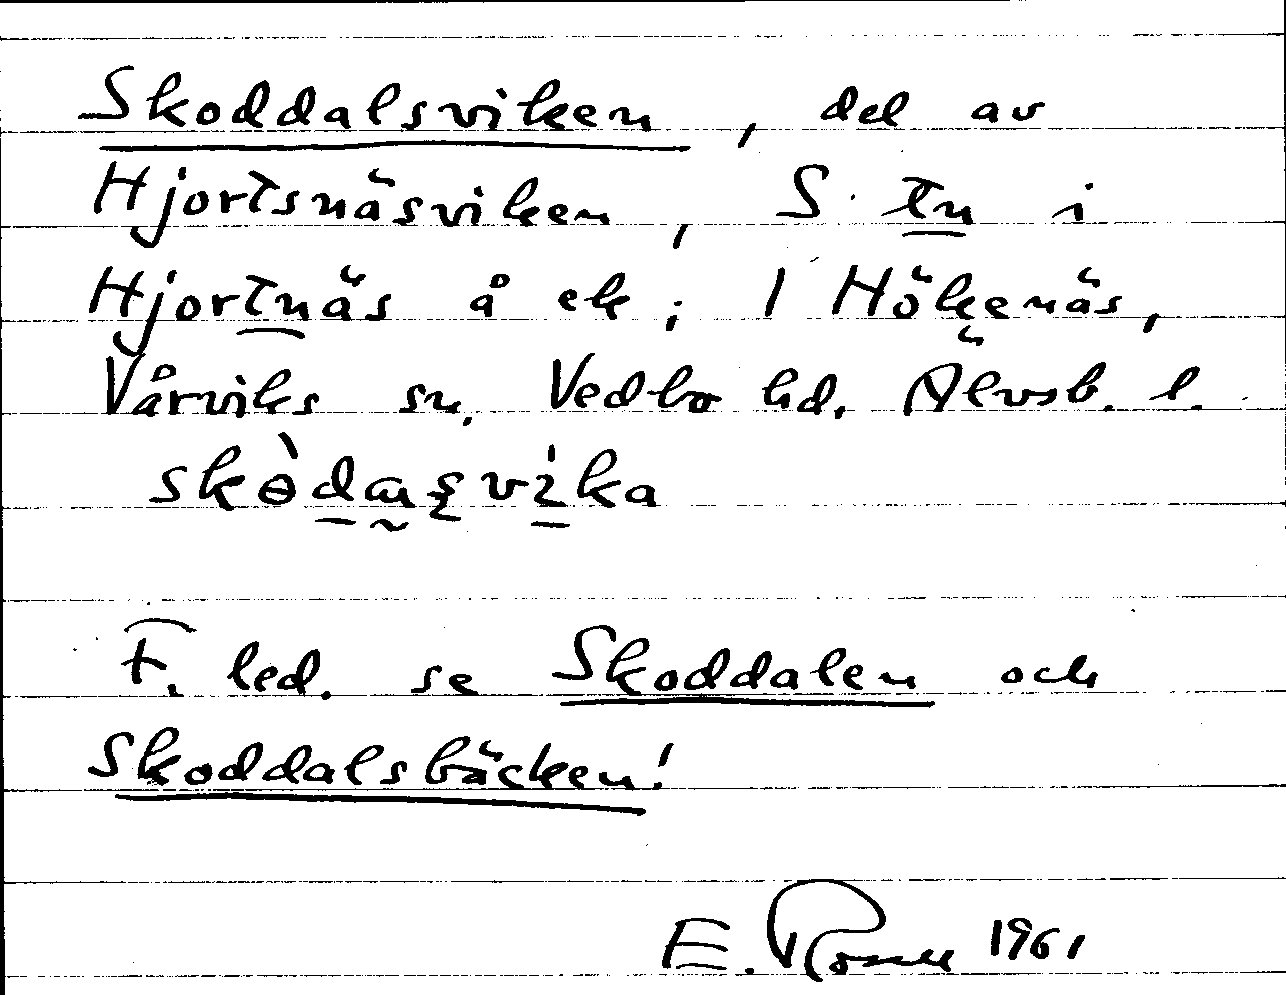 Skoddalsviken, del av
Hjortsnäsviken, S. tn i
Hjortnäs å ek; 1 Hökenäs,
Vårviks sn. Vedbo hd. Älvsb. l.
F. led. se Skoddalen och
Skoddalsbäcken!
E. 1961